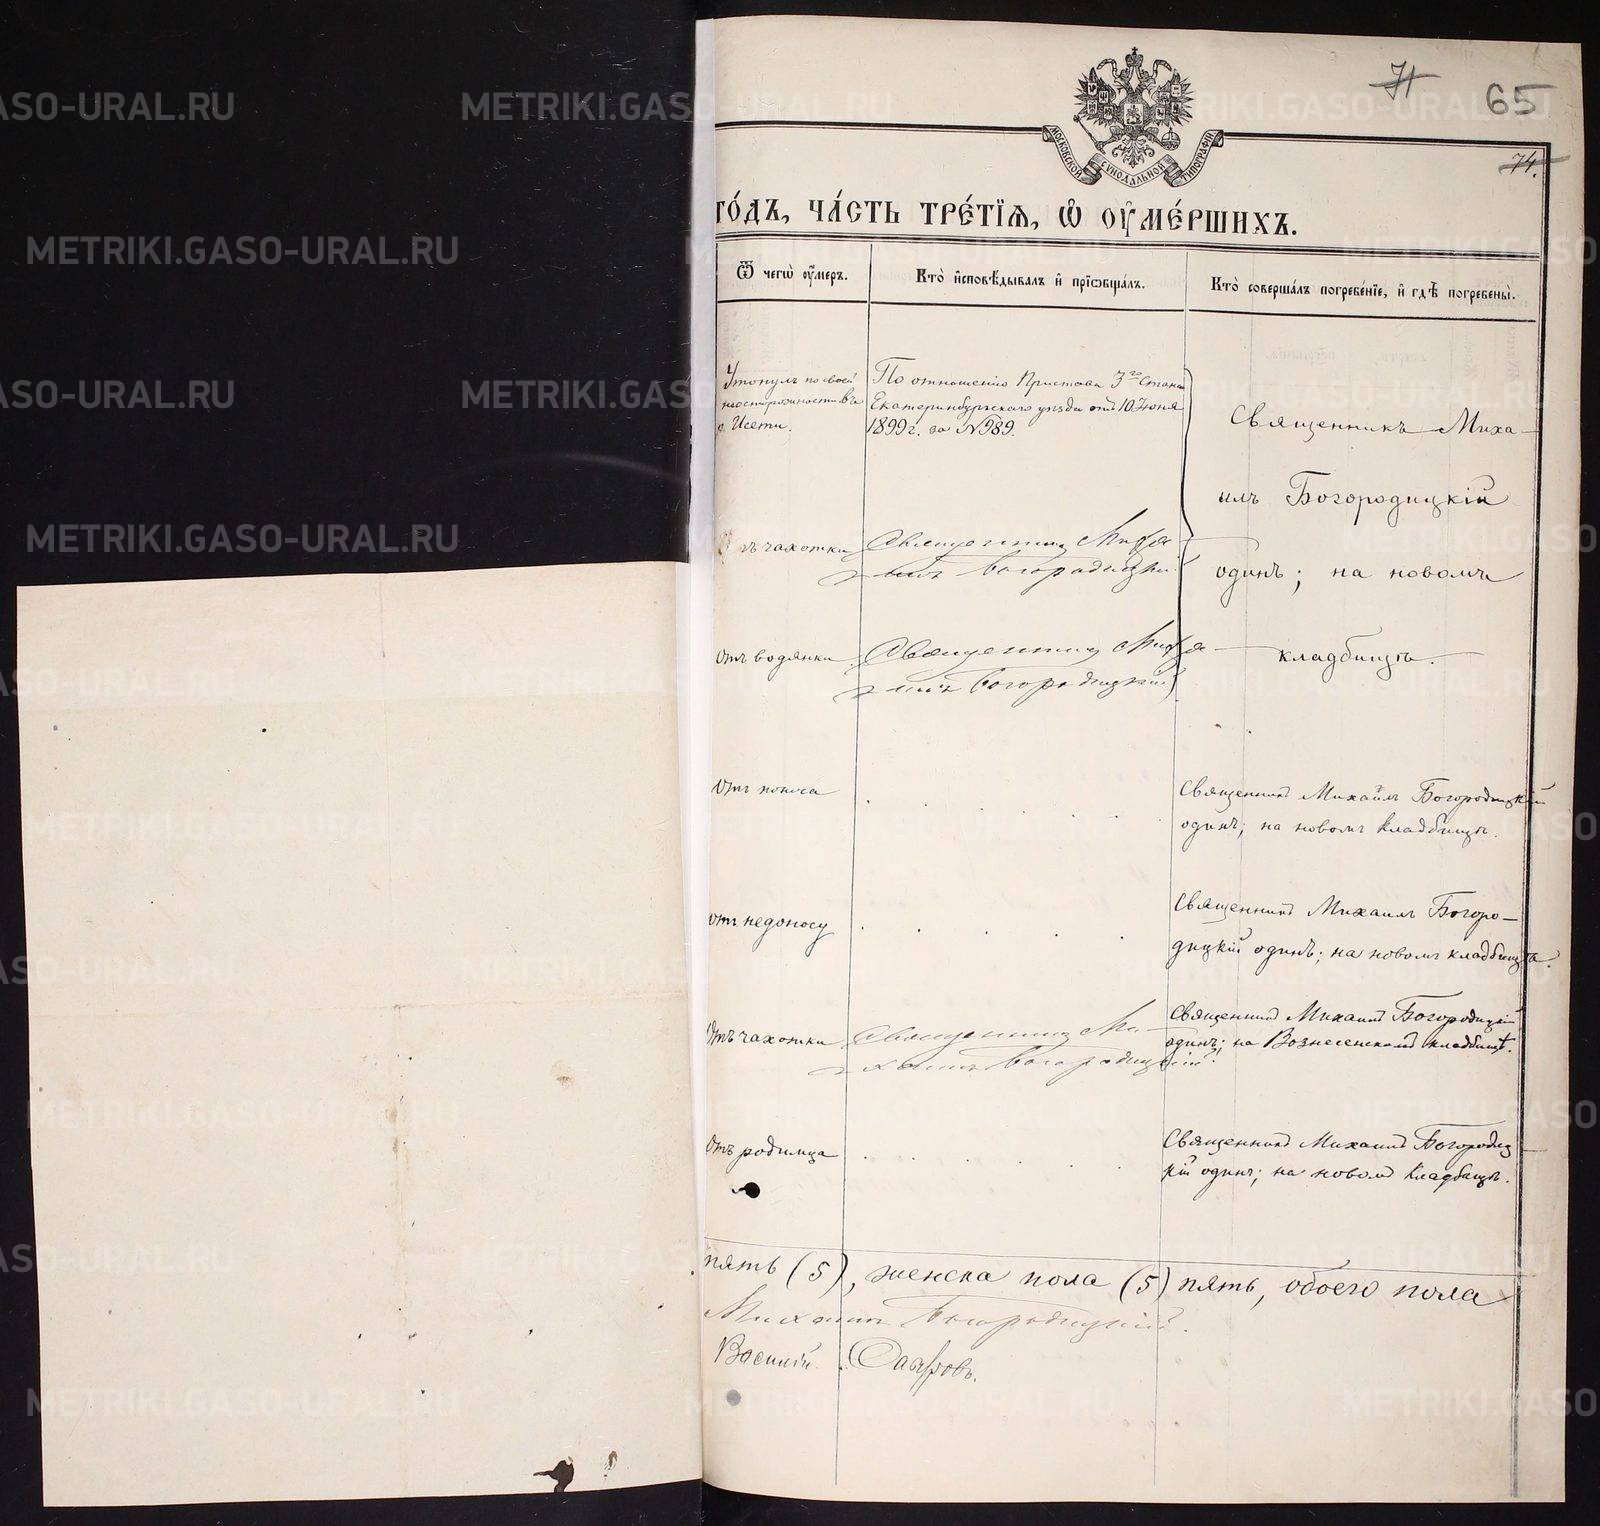 71 65
74.
МОСКОВСКОЙ СѴНОДАЛЬНОЙ ТИПОГРАФІИ
го́дъ, ча́сть тре́тїѧ, ѡ҆ ᲂу҆ме́ршихъ.
Ѿ чегѡ̀ ᲂу҆́меръ.
Кто̀ и҆сповѣ́дывалъ и҆ прїѻбща́лъ.
Кто̀ соверша́лъ погребе́нїе, и҆ гдѣ̀ погребены̀.
Утонулъ по своей
неосторожности въ
р. Исети.
По отношенію Пристава 3го Стана
Екатеринбургскаго уѣзда отъ 10 Іюня
1899 г. за № 989.
Священникъ Миха-
илъ Богородицкій
одинъ; на новомъ
кладбищѣ.
Отъ чахотки
Священникъ Миха
илъ Богородицкій
Отъ водянки
Священникъ Миха
илъ Богородицкій
Отъ поноса
Священникъ Михаилъ Богородицкій
одинъ; на новомъ кладбищѣ.
Отъ недоносу
Священникъ Михаилъ Богоро-
дицкій одинъ; на новомъ кладбищѣ.
Отъ чахотки
Священникъ Ми-
хаилъ Богородицкій.
Священникъ Михаилъ Богородицкій
одинъ; на Вознесенскомъ кладбищѣ.
Отъ родимца
Священникъ Михаилъ Богородиц-
кій одинъ; на новомъ кладбищѣ.
пять (5), женска пола (5) пять, обоего пола
Михаилъ Богородицкій.
Василій
METRIKI.GASO-URAL.RU